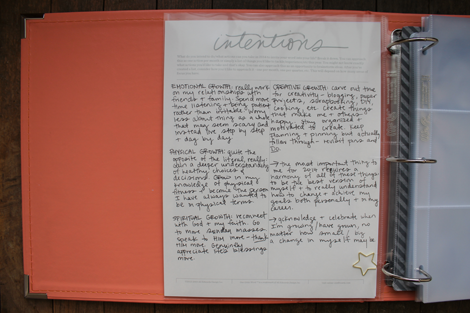 intentions
EMOTIONAL GROWTH: really work
on my relationships with
friends + family. Spend more
time listening + being patient
rather than irritable. Worry
less about things as a whole
that may seem scary and
instead live step by step
+ day by day.
PHYSICAL GROWTH: quite the
opposite of the literal, really
gain a deeper understanding
of healthy choices &
decisions. Grow in my
knowledge of physical
fitness + become the person
I have always wanted to
be in physical terms.
SPIRITUAL GROWTH: reconnect
with God + my faith. Go
to more Sunday masses.
Speak to Him more - thank
Him more. Genuinely
appreciate life's blessings
more.
CREATIVE GROWTH: carve out time
for creativity - blogging, paper
projects, scrapbooking, DIY,
cooking, etc. Create things
that make me + others
happy. Stay organized +
motivated to create. Keep
planning + pinning but actually
follow through - revisit pins and
Do.
→ the most important thing to
me for 2015 requires a
harmony of all of these things
to be the best version of
myself + to really understand
how to change + achieve my
goals both personally + in my
career.
→ acknowledge + celebrate when
I'm growing / have grown, no
matter how small / big
a change in myself it may be.